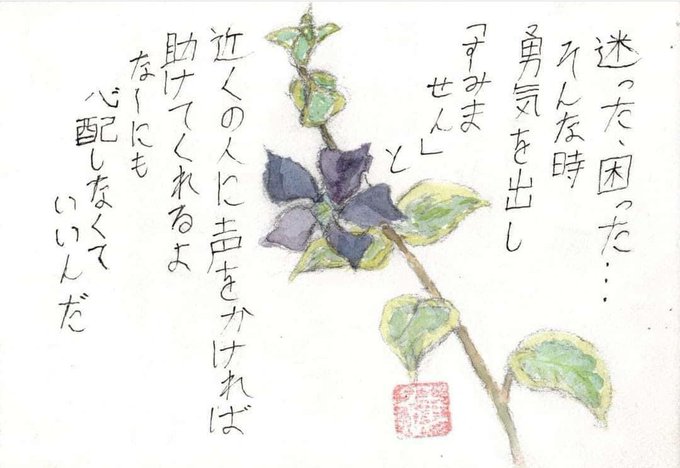 迷った、困った…
そんな時
勇気を出し
「すみま
せん」
と
近くの人に声をかければ
助けてくれるよ
なーにも
心配しなくて
いいんだ